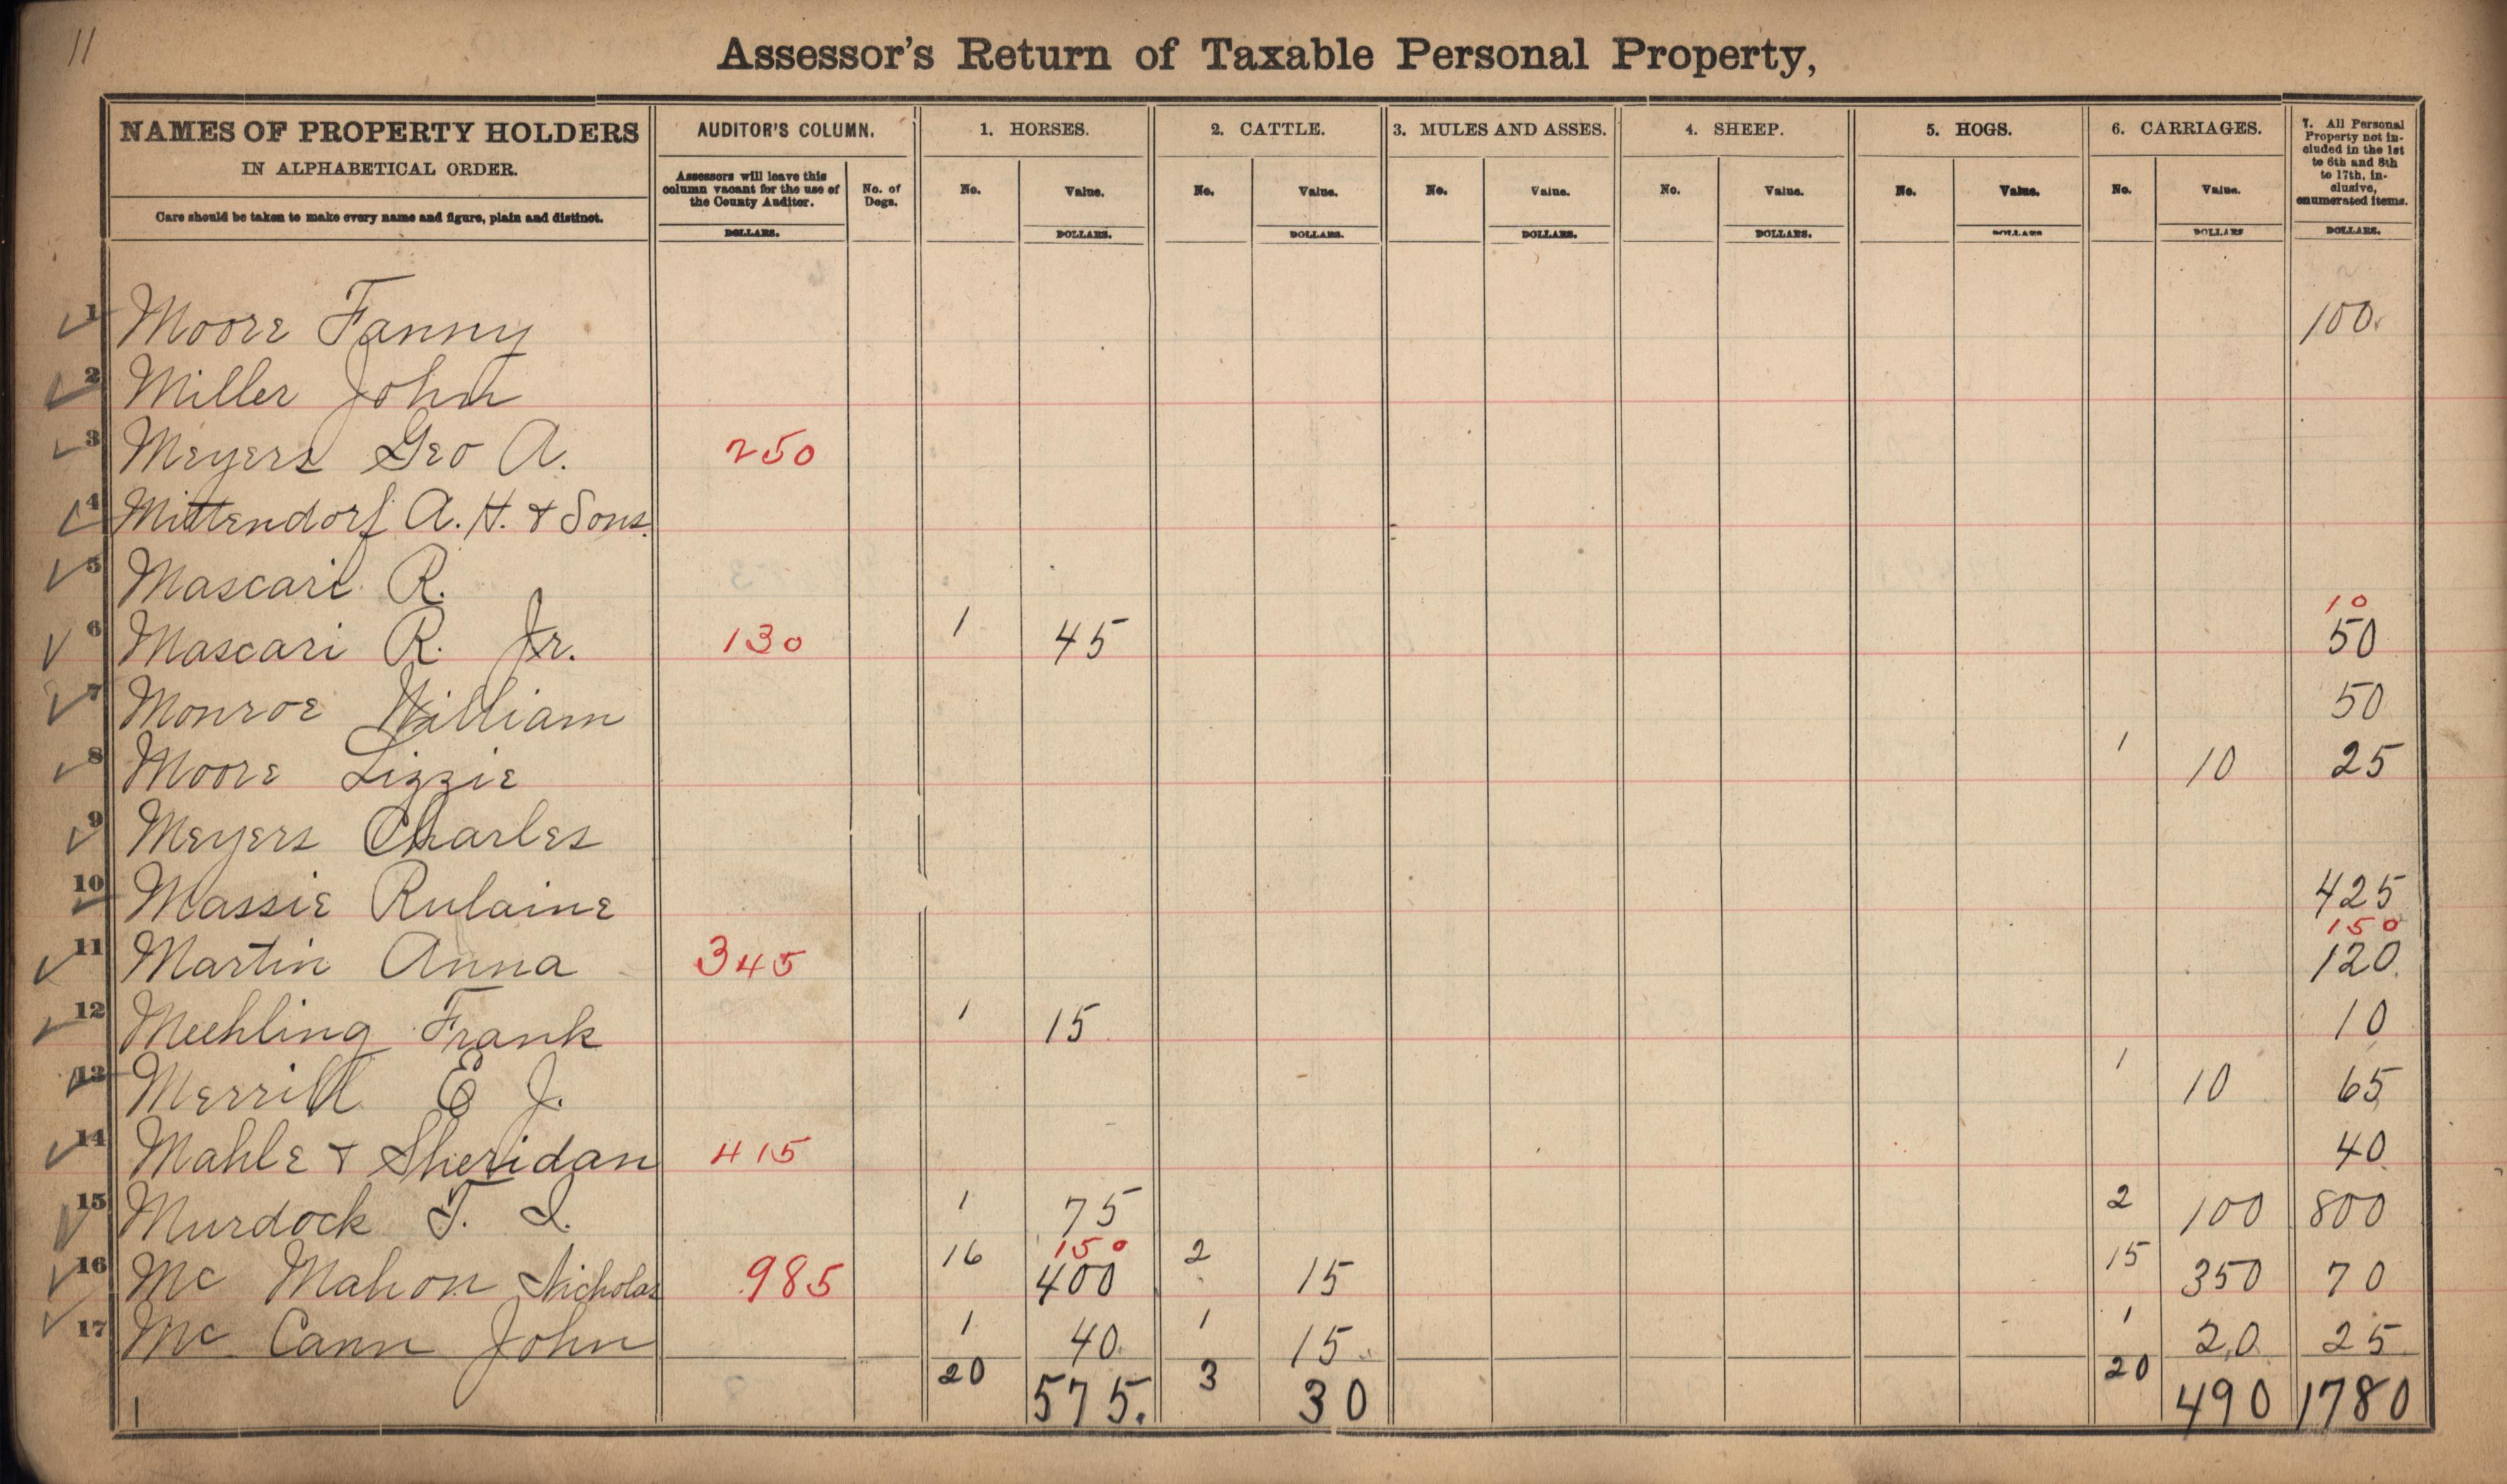 11
Assessor's Return of Taxable Personal Property,
NAMES OF PROPERTY HOLDERS
IN ALPHABETICAL ORDER.
Care should be taken to make every name and figure, plain and distinct.
AUDITOR'S COLUMN.
Assessors will leave this
column vacant for the use of
the County Auditor.
DOLLARS.
No. of
Dogs.
1. HORSES.
No. Value.
DOLLARS.
2. CATTLE.
No. Value.
DOLLARS.
3. MULES AND ASSES.
No. Value.
DOLLARS.
4. SHEEP.
No. Value.
DOLLARS.
5. HOGS.
No. Value.
DOLLARS
6. CARRIAGES.
No. Value.
DOLLARS
7. All Personal
Property not in-
cluded in the 1st
to 6th and 8th
to 17th, in-
clusive,
enumerated items.
DOLLARS.
1 Moore Fanny 100.
2 Miller John
3 Meyers Geo A. 250
4 Mittendorf A. H. & Sons.
5 Mascari R.
10
6 Mascari R. Jr. 130 1 45 50
7 Monroe William 50
8 Moore Lizzie 1 10 25
9 Meyers Charles
10 Massie Rulaine 425
150
11 Martin Anna 345 120.
12 Meehling Frank 1 15 10
13 Merrill E J. 1 10 65
14 Mahle & Sheridan 415 40.
15 Murdock T. I. 1 75 2 100 800
150
16 Mc Mahon Nicholas 985 16 400 2 15 15 350 70
17 Mc Cann John 1 40. 1 15 1 20 25
20 575. 3 30 20 490 1780